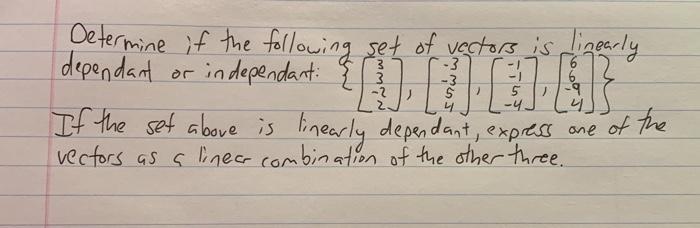 Determine if the following set of vectors is linearly
dependant or independant: { [3 3 -2 2], [-3 -3 5 4], [-1 -1 5 -4], [6 6 -9 4] }
If the set above is linearly dependant, express one of the
vectors as a linear combination of the other three.